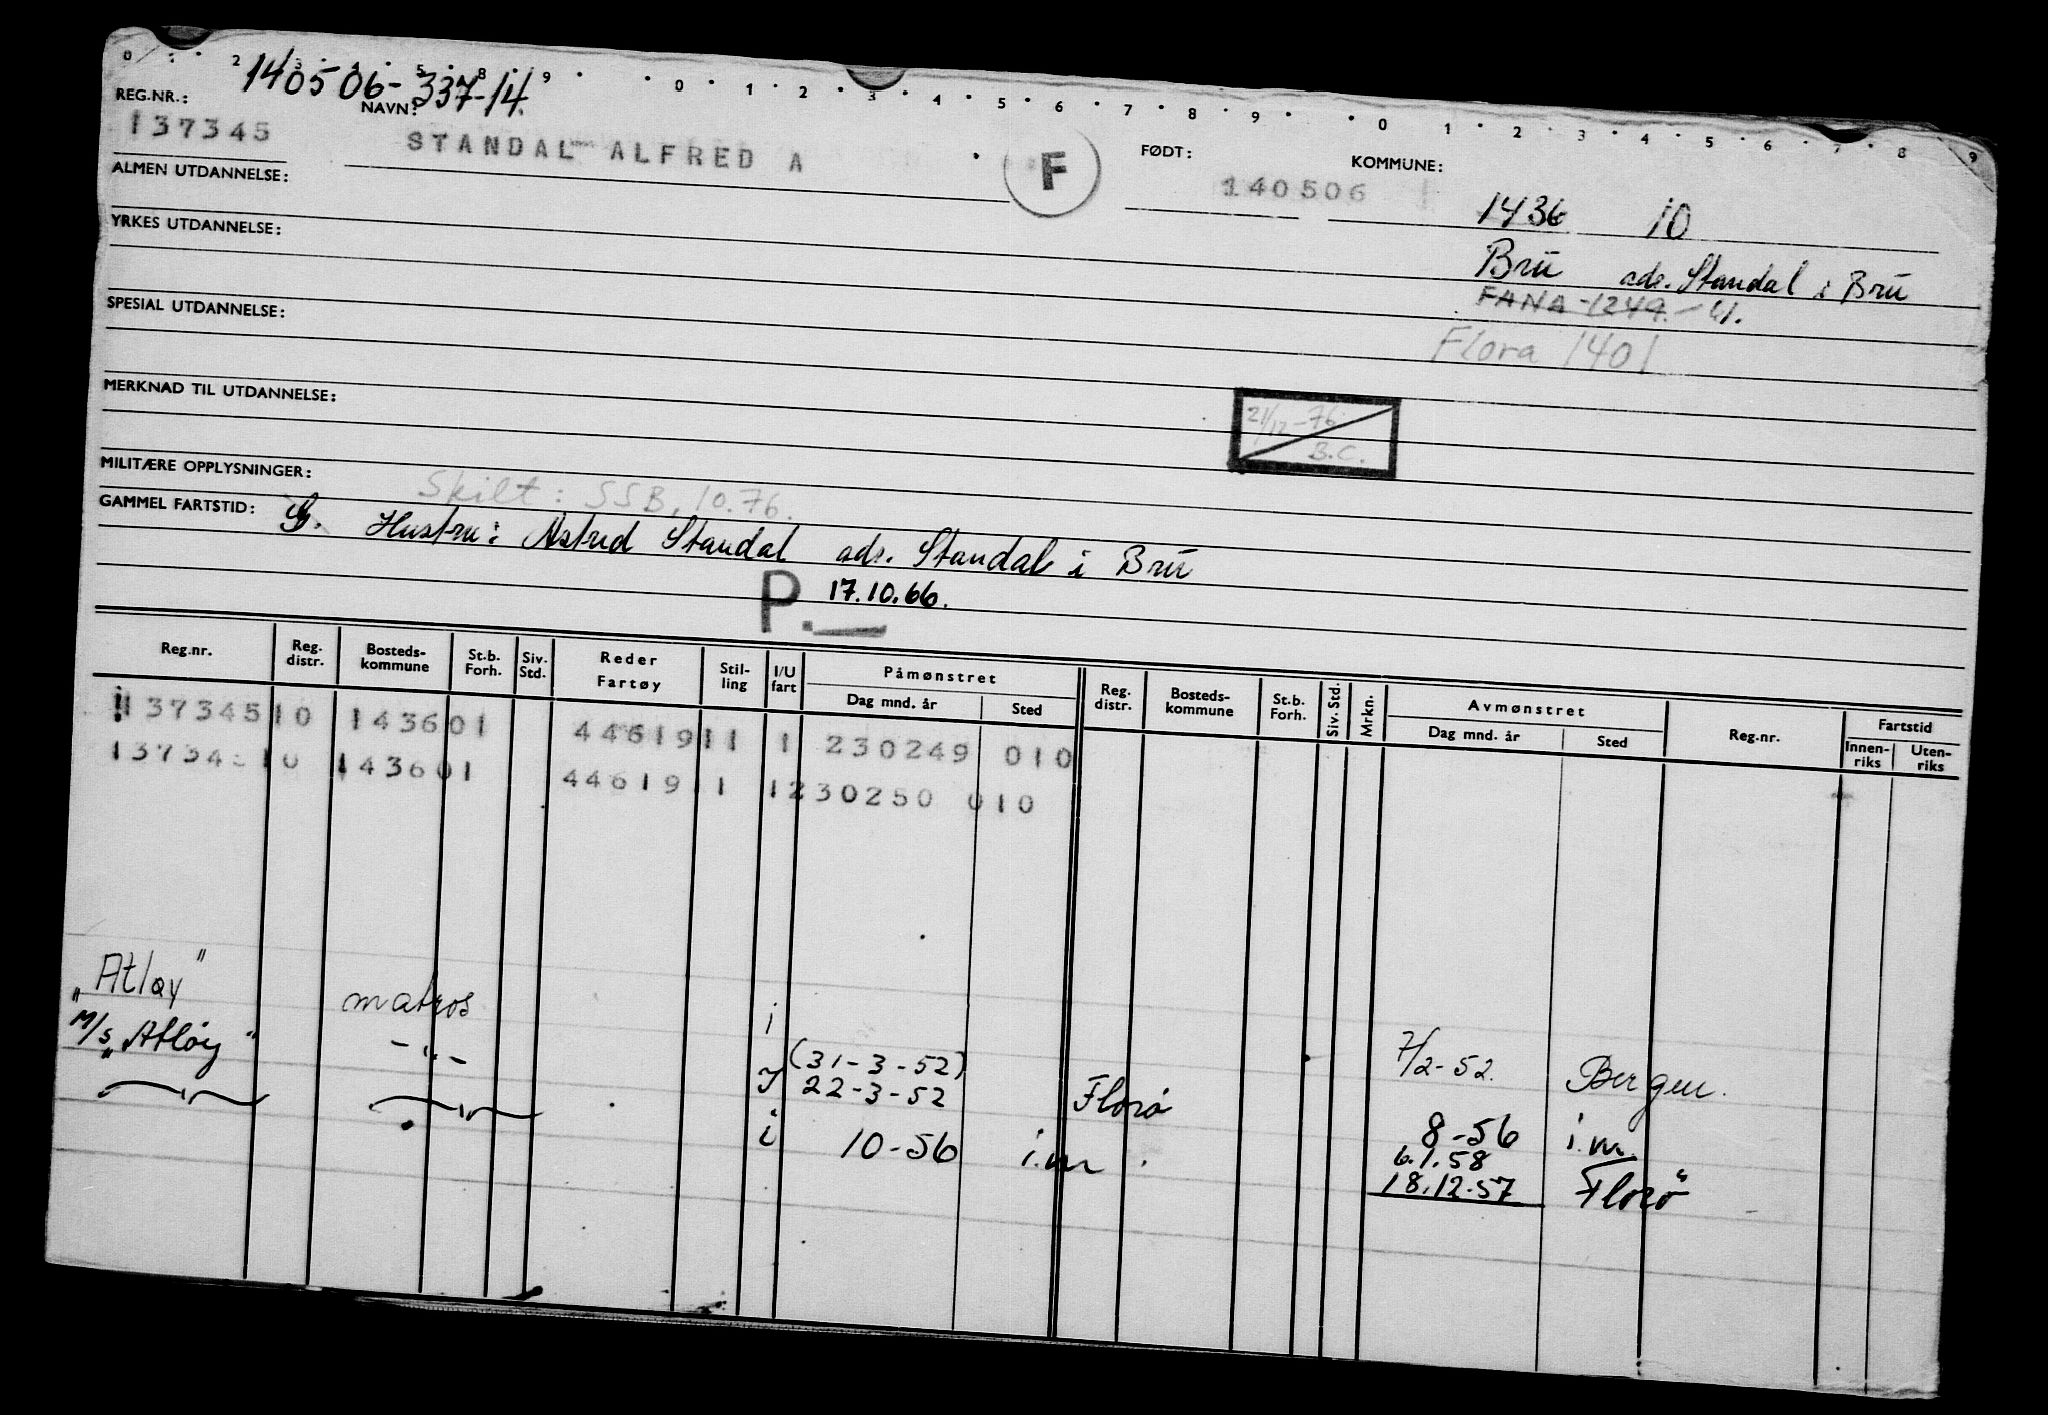 0 2 3 5 8 9 0 1 2 3 4 5 6 7 8 9 0 1 2 3 4 5 6 7 8 9
140506-337-14.
REG.NR.: NAVN: FØDT: KOMMUNE:
137345 STANDAL ALFRED A F 140506
1436 10
ALMEN UTDANNELSE:
Bru adr. Standal i Bru
YRKES UTDANNELSE:
FANA-1249.-41.
Flora 1401
SPESIAL UTDANNELSE:
MERKNAD TIL UTDANNELSE:
21/12-76
B.C.
MILITÆRE OPPLYSNINGER:
Skilt: SSB, 10.76.
GAMMEL FARTSTID: G. Hustru: Astrid Standal adr. Standal i Bru
P. 17.10.66.
Reg.nr. Reg. distr. Bosteds-kommune St.b. Forh. Siv. Std. Reder Fartøy Stil-ling I/U fart Påmønstret Dag mnd. år Sted Reg. distr. Bosteds-kommune St.b. Forh. Siv. Std. Mrkn. Avmønstret Dag mnd. år Sted Reg.nr. Fartstid Innen-riks Uten-riks
137345 10 1436 01 44619 11 1 230249 010
137345 10 1436 01 44619 11 1 230250 010
"Atløy" matros i 7/2-52. Bergen.
(31-3-52)
M/s "Atløy" -"- I 22-3-52 Florø 8-56 i.m
6.1.58
-"- -"- i 10-56 i.m. 18.12.57 Florø